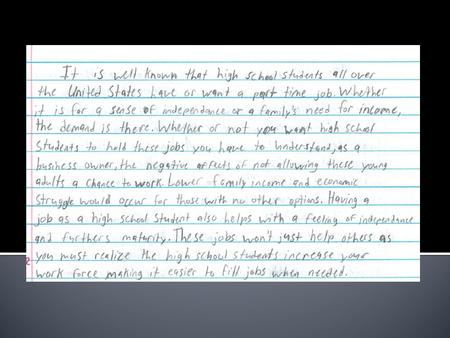 It is well known that high school students all over
the United States have or want a part time job. Whether
it is for a sense of independance or a family's need for income,
the demand is there. Whether or not you want high school
students to hold these jobs you have to understand, as a
business owner, the negative affects of not allowing these young
adults a chance to work. Lower family income and economic
struggle would occur for those with no other options. Having a
job as a high school student also helps with a feeling of independance
and furthers maturity. These jobs won't just help others as
you must realize the high school students increase your
work force making it easier to fill jobs when needed.